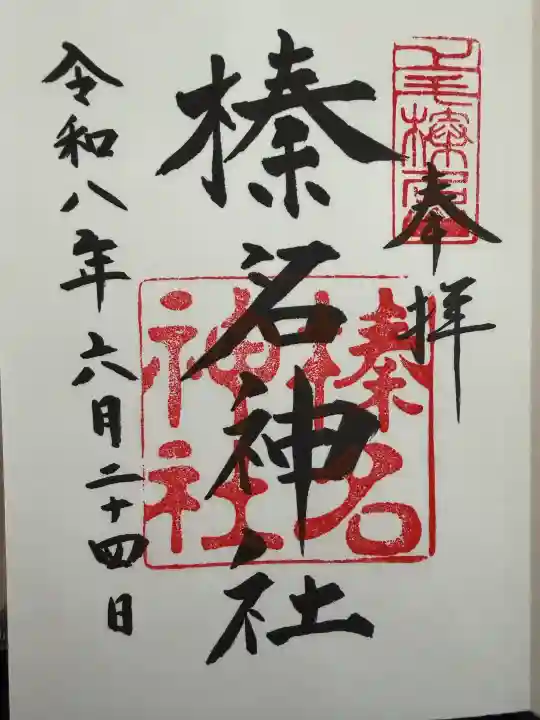 上毛榛名
奉拝
榛名神社
榛名神社
令和八年六月二十四日